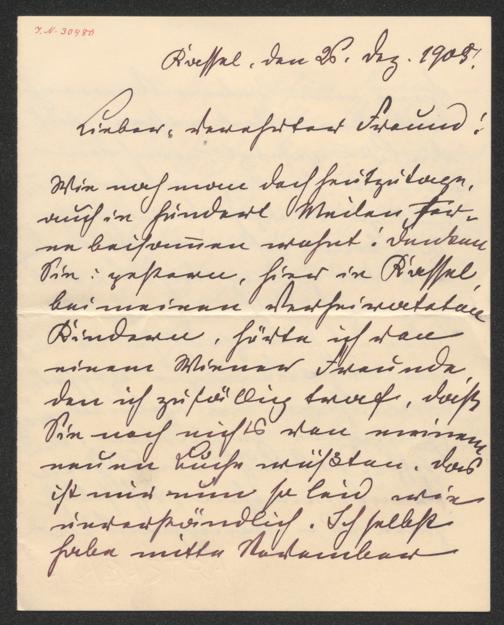 I.N. 30480
Kassel, den 26. Dez. 1908!
Lieber, verehrter Freund!
Wie nah man doch heutzutage,
auch in hundert Meilen Fer-
ne beisammen wohnt! Denken
Sie: gestern, hier in Kassel,
bei meinen verheirateten
Kindern, hörte ich von
einem Wiener Freunde,
den ich zufällig traf, daß
Sie noch nichts von meinem
neuen Buche wüßten. Das
ist mir nun so leid wie
unverständlich. Ich selbst
habe mitte November